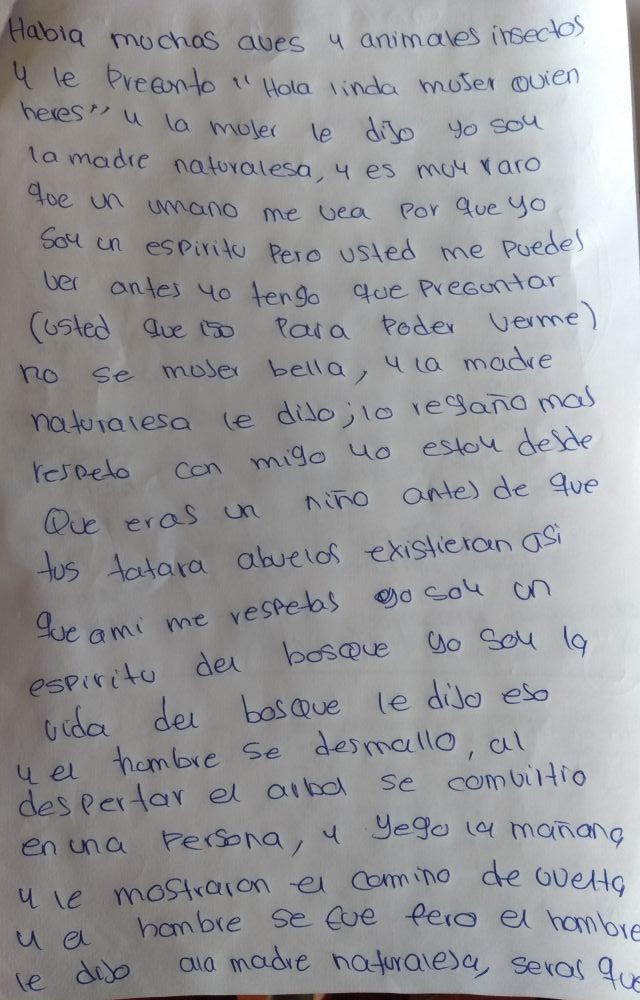 Habia muchas aves y animales insectos
y le Pregunto "Hola linda mujer quien
heres" y la mujer le dijo yo soy
la madre naturalesa, y es muy raro
que un umano me vea Por que yo
Soy un espiritu Pero usted me puedes
ver antes yo tengo que preguntar
(usted que iso Para Poder verme)
no se mujer bella, y la madre
naturalesa le dijo; lo regaño mas
respeto con migo yo estoy desde
Que eras un niño antes de que
tus tatara abuelos existieran asi
que ami me respetas yo soy un
espiritu del bosque yo soy la
vida del bosque le dijo eso
y el hombre se desmallo, al
despertar el arbol se combirtio
en una Persona, y yego la mañana
y le mostraron el camino de vuelta
y el hombre se fue pero el hombre
le dijo ala madre naturalesa, seras que